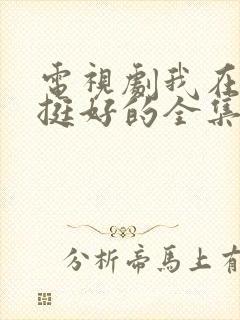 電視劇我在
挺好的全集
分析帝馬上有